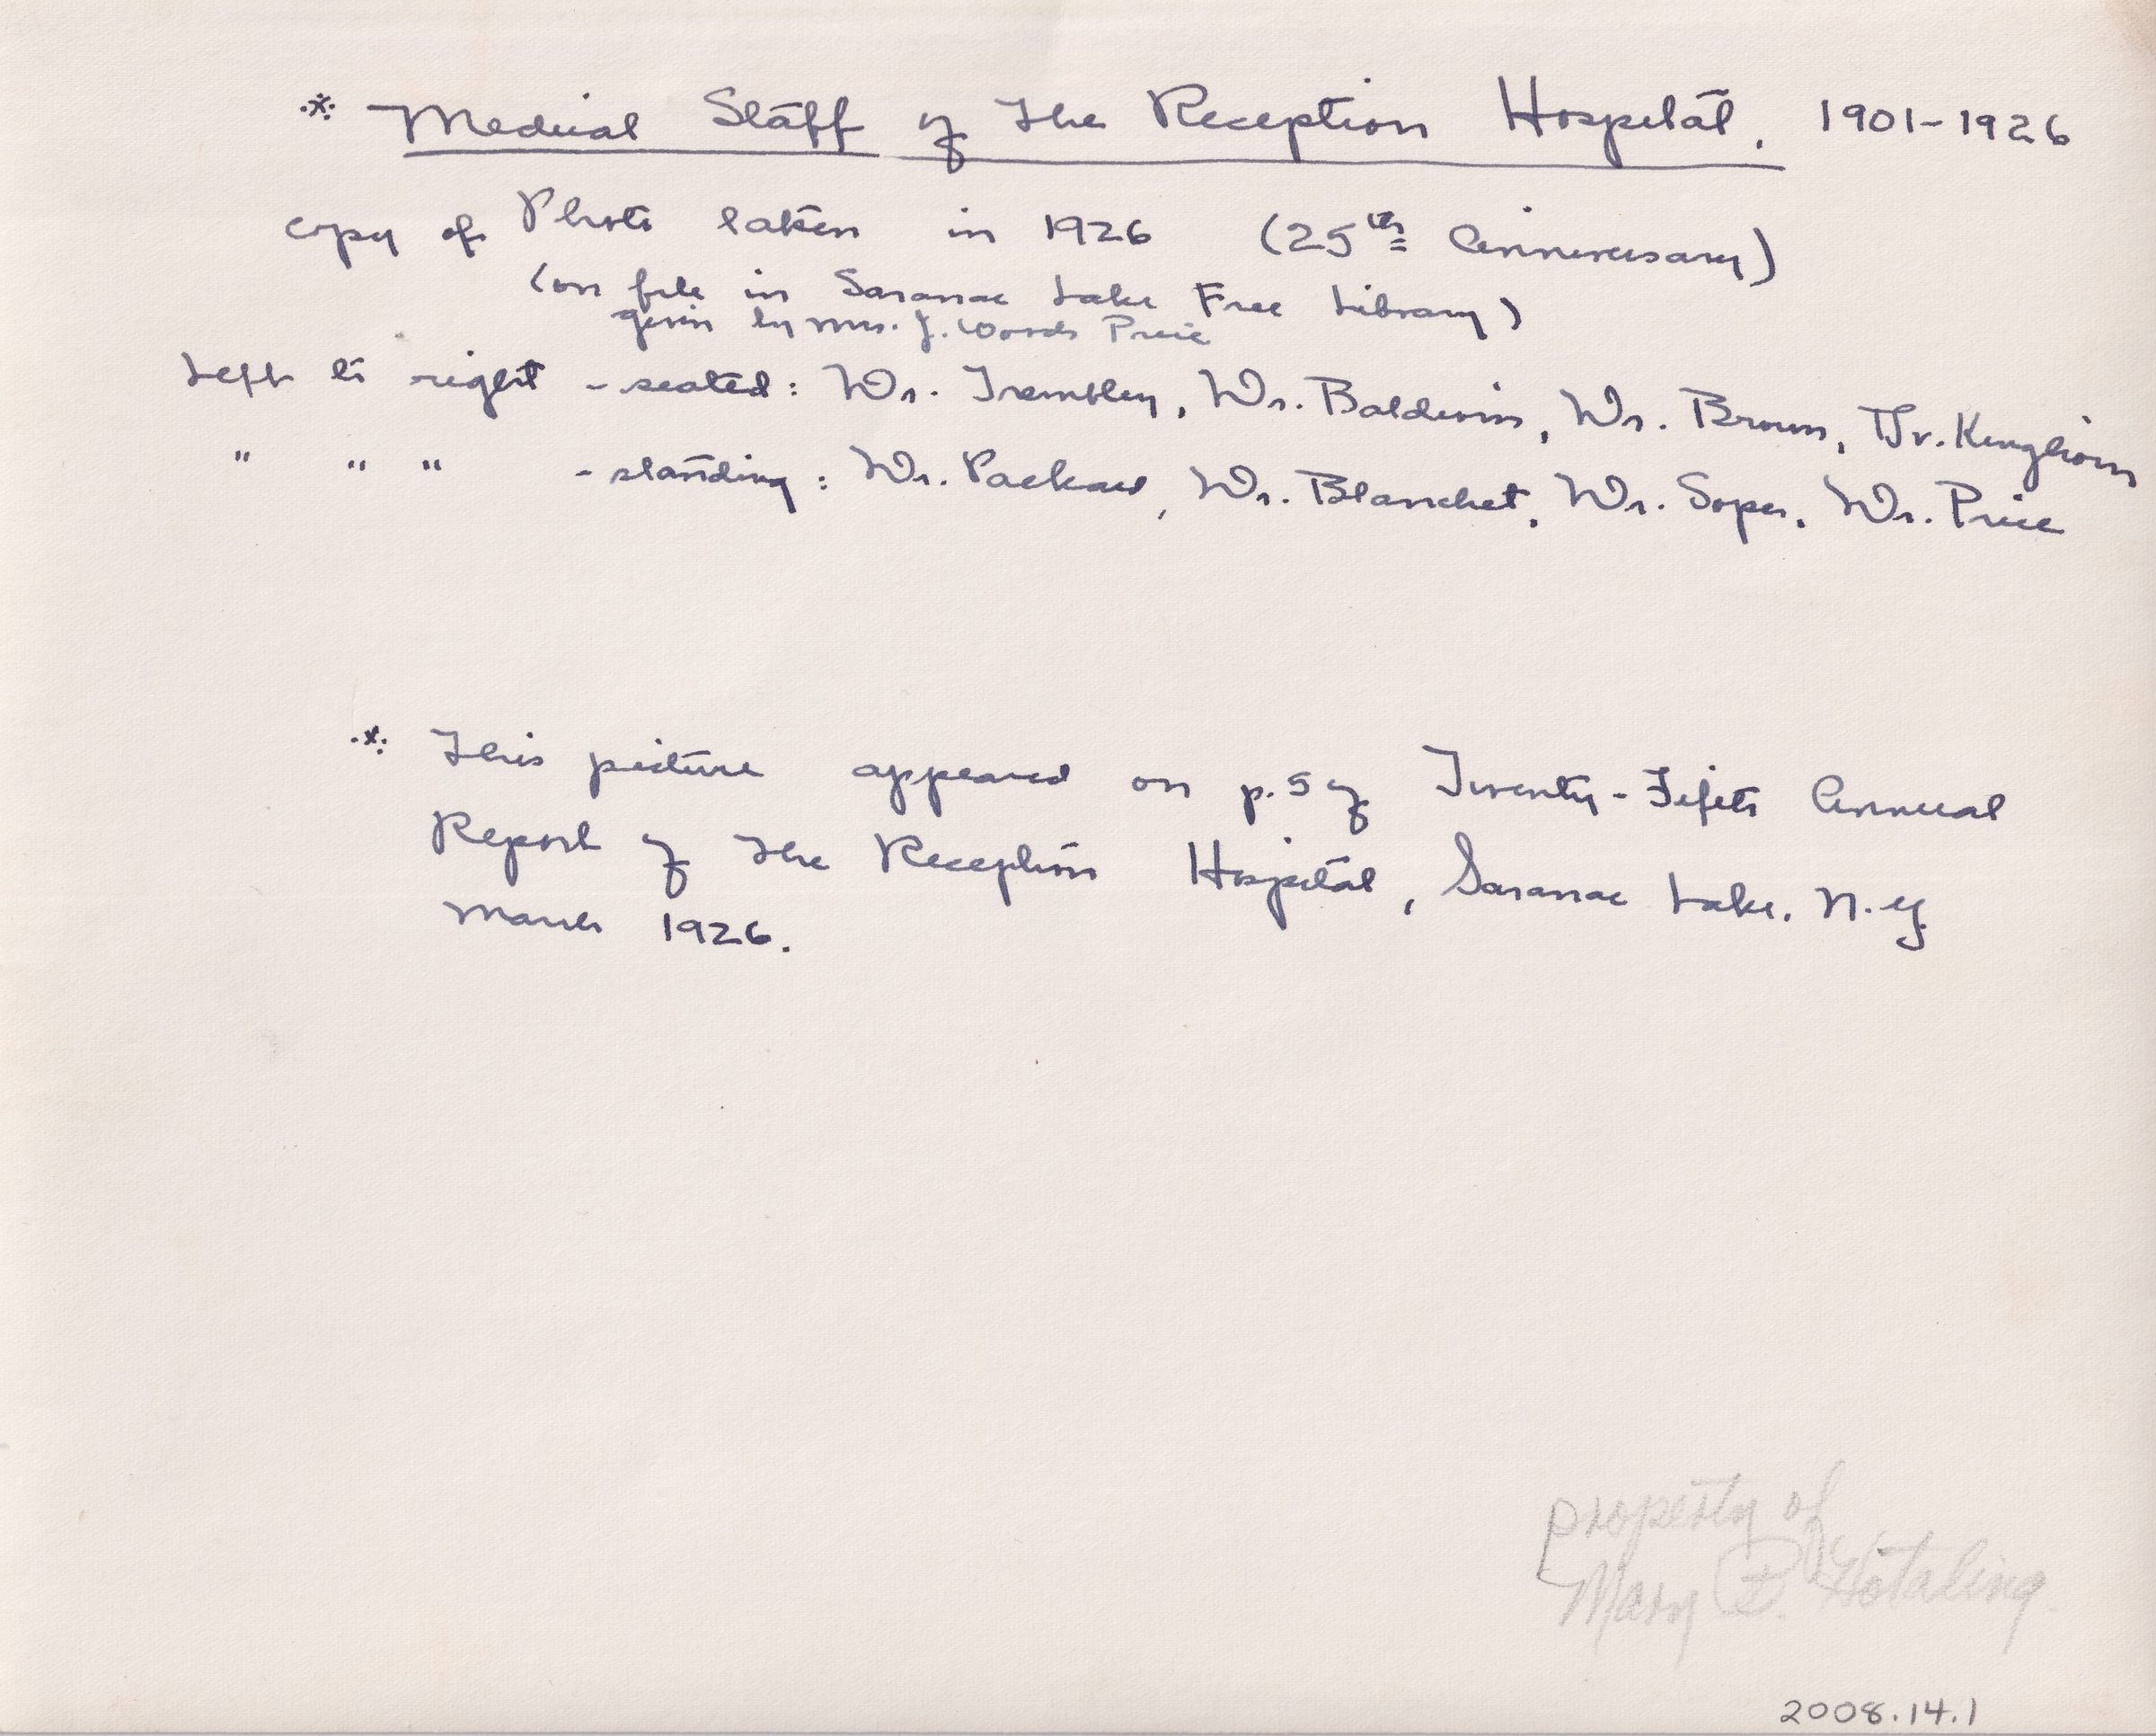 * Medical Staff of The Reception Hospital. 1901-1926
copy of Photo taken in 1926 (25th Anniversary)
(on file in Saranac Lake Free Library)
given by Mrs. J. Woods Price
Left to right - seated: Dr. Trembley, Dr. Baldwin, Dr. Brown, Dr. Kinghorn
" " " - standing: Dr. Packard, Dr. Blanchet, Dr. Soper, Dr. Price
* This picture appeared on p. 5 of Twenty-Fifth Annual
Report of The Reception Hospital, Saranac Lake, N.Y.
March 1926.
Property of
Mary B. Hotaling
2008.14.1